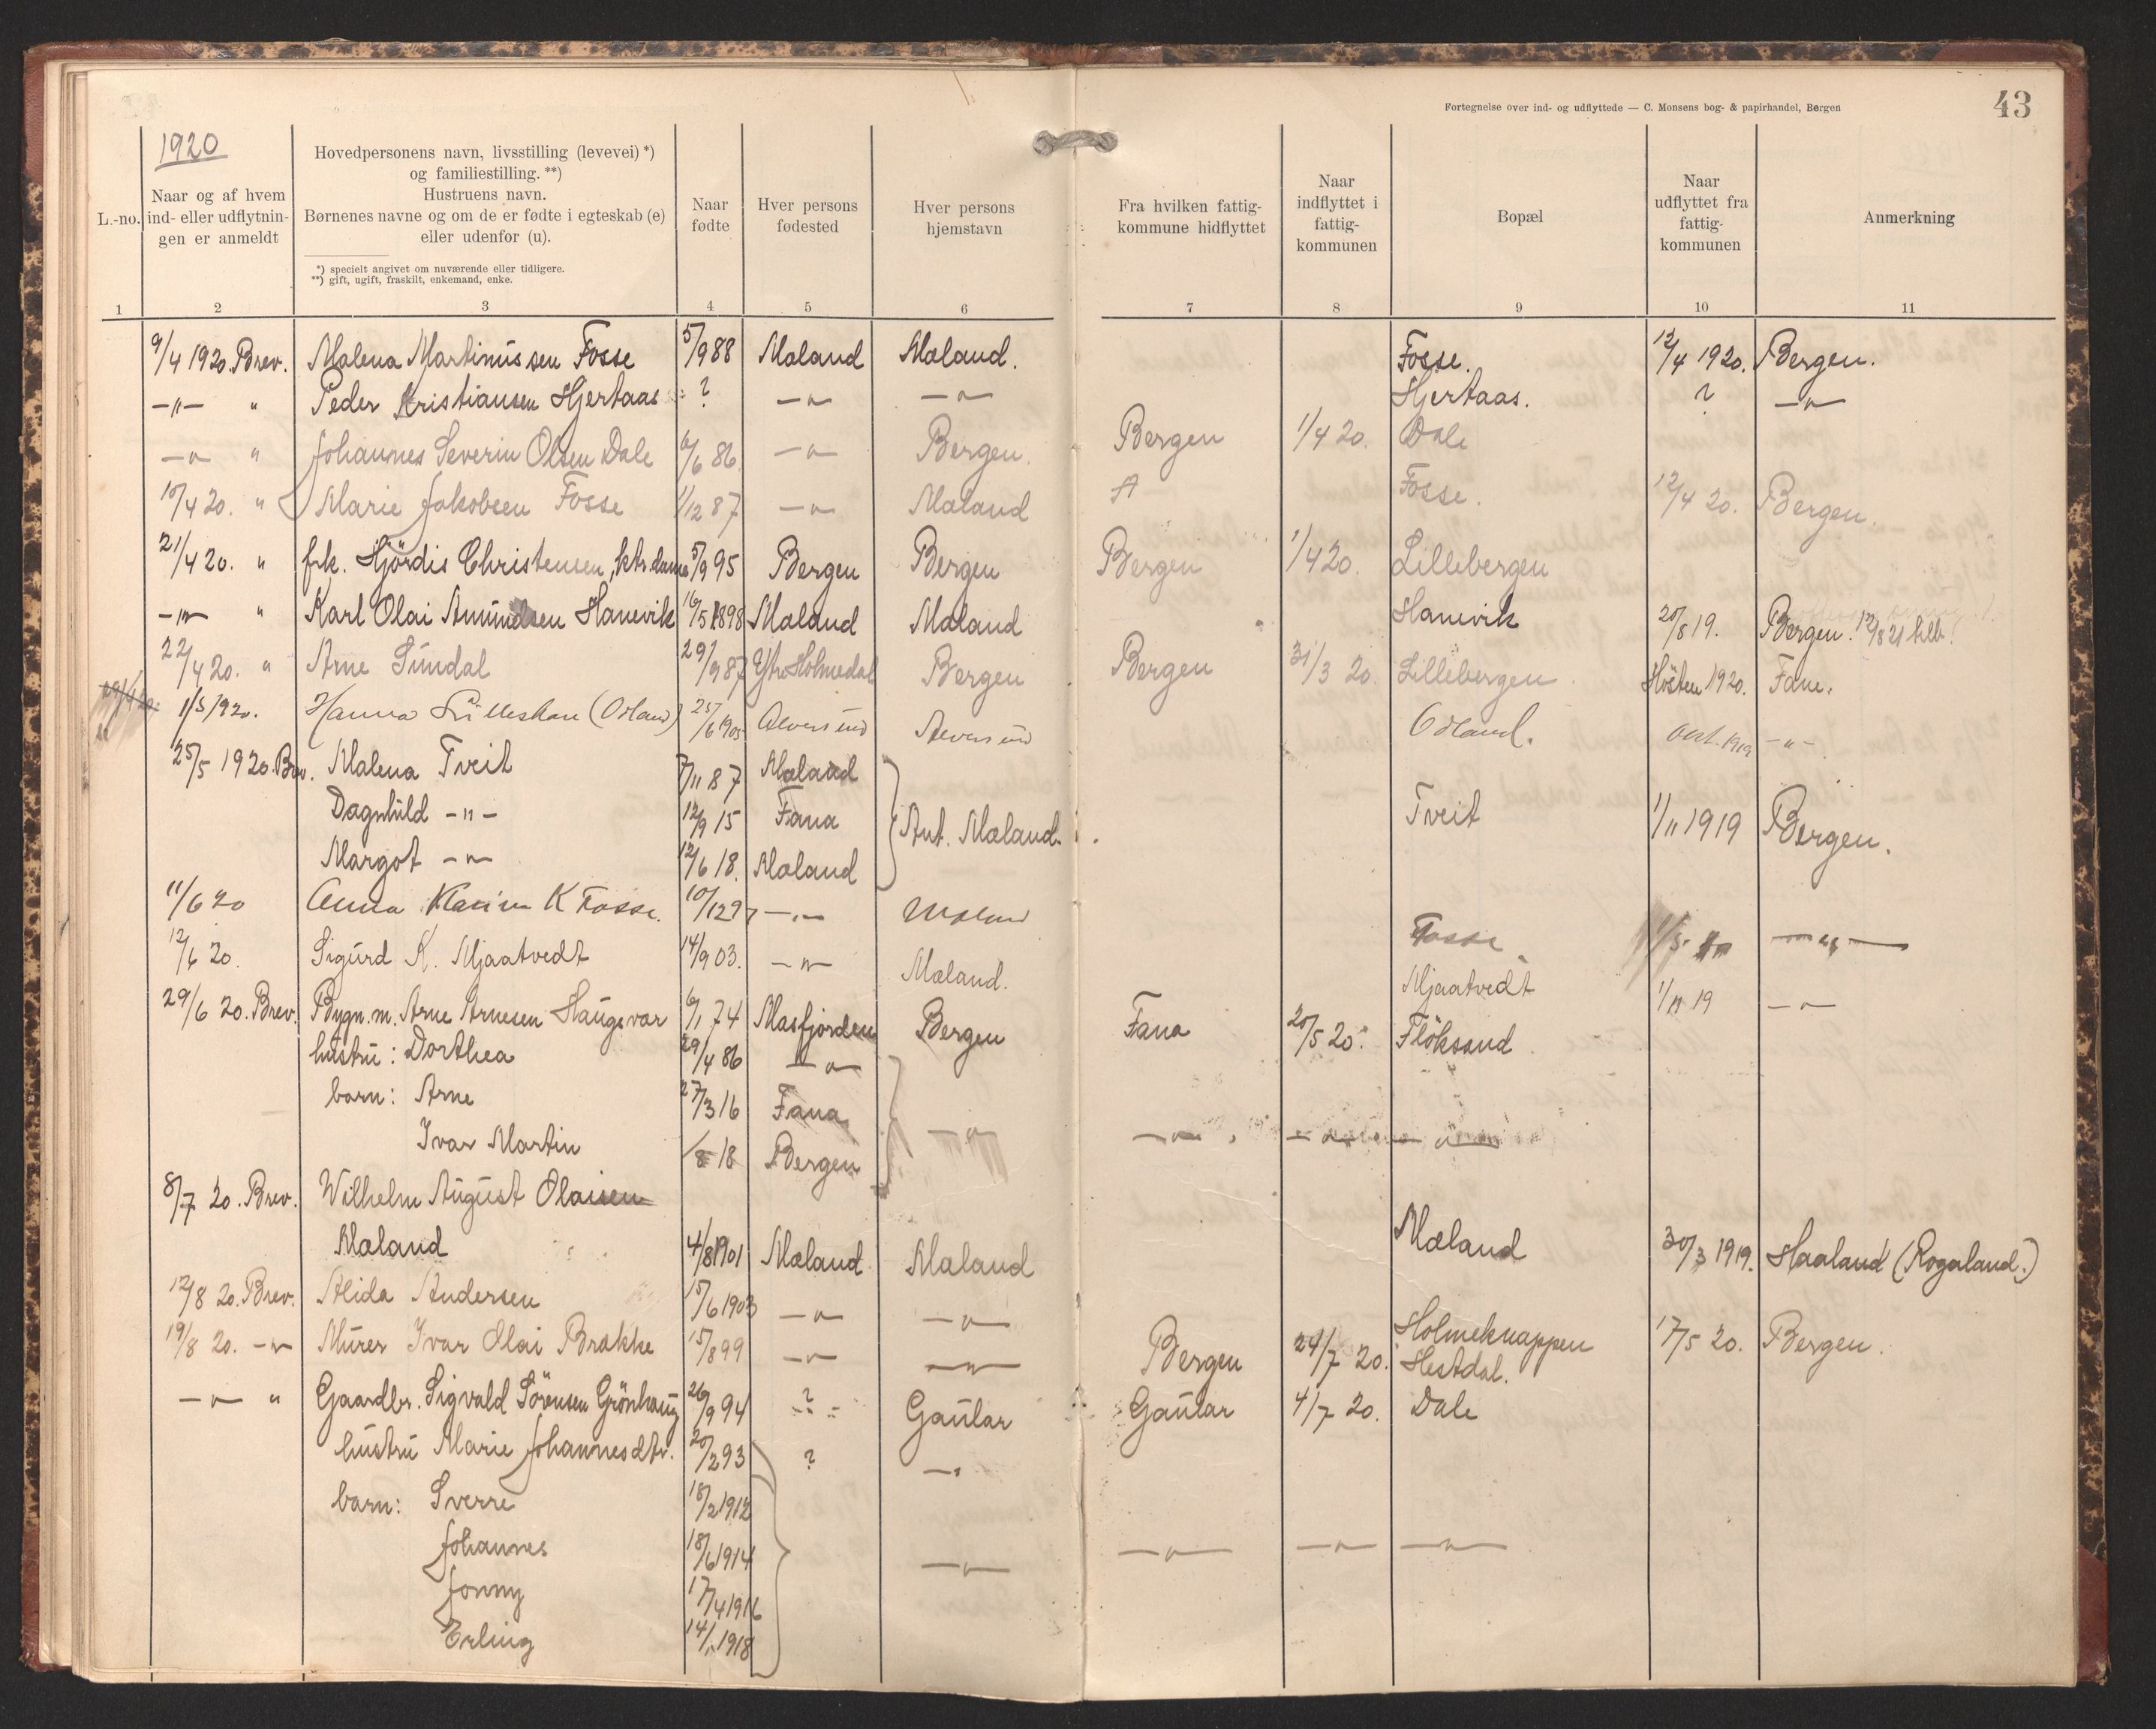 Fortegnelse over ind- og udflyttede — C. Monsens bog- & papirhandel, Bergen
43
1920
L.-no.
Naar og af hvem ind- eller udflytningen er anmeldt
Hovedpersonens navn, livsstilling (levevei) *) og familiestilling. **) Hustruens navn. Børnenes navne og om de er fødte i egteskab (e) eller udenfor (u).
*) specielt angivet om nuværende eller tidligere.
**) gift, ugift, fraskilt, enkemand, enke.
Naar fødte
Hver persons fødested
Hver persons hjemstavn
Fra hvilken fattigkommune hidflyttet
Naar indflyttet i fattigkommunen
Bopæl
Naar udflyttet fra fattigkommunen
Anmerkning
1 2 3 4 5 6 7 8 9 10 11
9/4 1920. Brev. Malena Martinussen Fosse 5/9 88 Mæland Mæland. Fosse. 12/4 1920. Bergen.
—"— " Peder Kristiansen Hjertaas ? —"— —"— Hjertaas. ? —"—
—"— " Johannes Severin Olsen Dale 6/6 86. —"— Bergen. Bergen 1/4 20. Dale
10/4 20. " Marie Jakobsen Fosse 1/12 87 —"— Mæland Fosse. 12/4 20. Bergen.
21/4 20. " frk. Hjördis Christensen, ktr.dame 5/9 95 Bergen Bergen Bergen 1/4 20. Lillebergen
—"— " Karl Olai Amundsen Hanevik 16/5 1898 Mæland Mæland Hanevik 20/8 19. Bergen. 12/8 21 tilb.
22/4 20. " Arne Sundal 29/9 87 Ytr. Holmedal Bergen Bergen 31/3 20. Lillebergen. Hösten 1920. Fane.
1/5 1920. Hanna (Odland) 25/6 1905 Alversund Alversund Odland. Okt. 1919 —"—
25/5 1920. Brev. Malena Tveit 7/11 87 Mæland
Dagnhild —"— 12/9 15 Fana Ant. Mæland. Tveit 1/11 1919 Bergen.
Margot —"— 12/6 18. Mæland
11/6 20 Anna Karina K Fosse. 10/12 97 —"— Mæland Fosse 1/5 —"—
12/6 20. Sigurd K. Mjaatvedt 14/9 03. —"— Mæland. Mjaatvedt 1/11 19 —"—
29/6 20. Brev. Bygn.m. Arne Arnesen Haugsvær 6/1 74 Masfjorden Bergen Fana 20/5 20. Flöksand
hustru: Dorthea 29/4 86 —"—
barn: Arne 27/3 16 Fana —"— —"— —"— —"—
Ivar Martin /8 18 Bergen
8/7 20. Brev. Wilhelm August Olaisen
Mæland 4/8 1901 Mæland Mæland Mæland 30/3 1919. Haaland (Rogaland.)
12/8 20. Brev. Alida Andersen 15/6 1903 —"— —"— Holmeknappen 17/5 20. Bergen.
19/8 20. —"— Murer Ivar Olai Brakke 15/8 99 —"— —"— Bergen 29/7 20. Hestdal.
—"— " Gaardbr. Sigvald Sörensen Grönhaug 26/9 94 ? Gaular Gaular 4/7 20. Dale
hustru Marie Johannesdtr. 20/2 93 ? —"—
barn: Sverre 18/2 1912
Johannes 18/6 1914 —"— —"— —"— —"—
Jonny 17/4 1916
Erling 14/11 1918